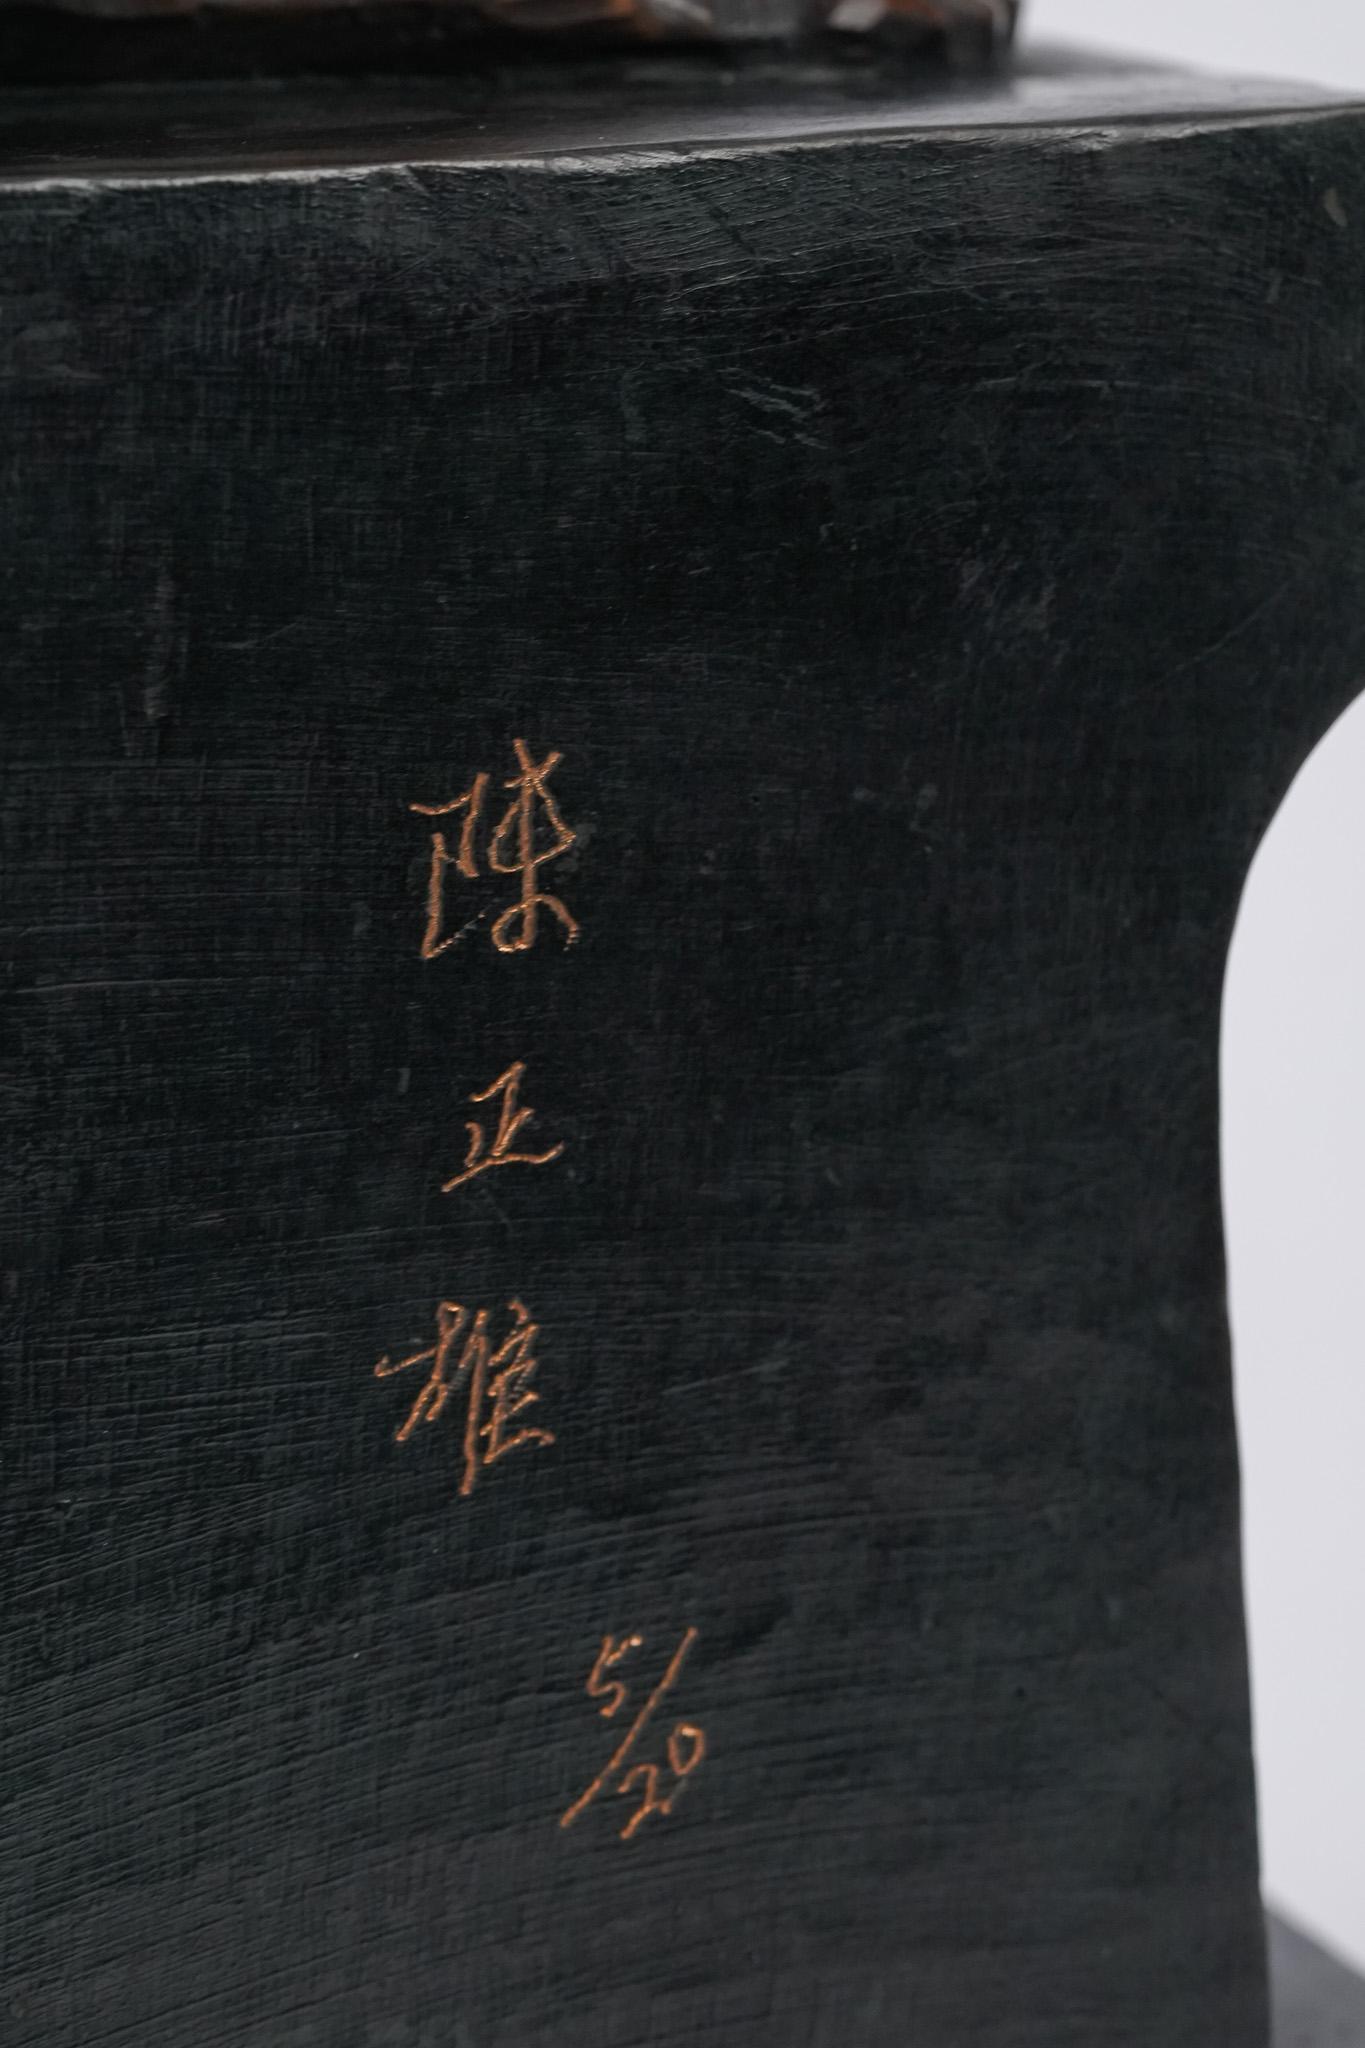 陳正雄
5/20